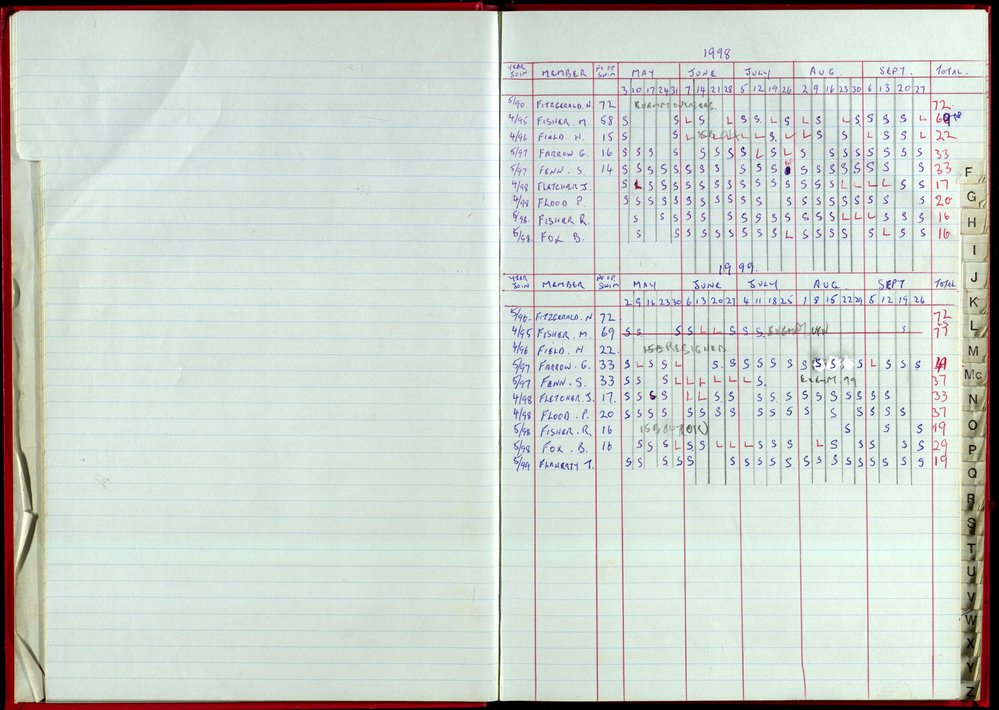 1998
YEAR JOIN MEMBER NO OF SWIM MAY JUNE JULY AUG SEPT. TOTAL.
3 10 17 24 31 7 14 21 28 5 12 19 26 2 9 16 23 30 6 13 20 27
5/90 FITZGERALD.N. 72 EXEMPT OVERSEAS 72
4/95 FISHER. M 58 S S L S L S S L S L S L S S S S S L 69
4/96 FIELD. N. 15 S S L L L S L L S S L S S L 22
5/97 FARROW G. 16 S S S S S S S S S L S L S S S S S S S S 33
5/97 FENN. S. 14 S S S S S S S S S S S S S S S S S S S 33
4/98 FLETCHER J. S L S S S S S S S S S S S S S S L L L L S S 17
4/98 FLOOD P. S S S S S S S S S S S S S S S S S S S S 20
5/98. FISHER R. S S S S S S S S S S S S S S L L L S S S 16
5/98. FOX B. S S S S S S S S S S L S S S S S L S S 16
1999.
YEAR JOIN MEMBER NO OF SWIM MAY JUNE JULY AUG SEPT TOTAL
2 9 16 23 30 6 13 20 27 4 11 18 25 1 8 15 22 29 5 12 19 26
5/90. FITZGERALD.N 72 72
4/95 FISHER. M. 69 S S S S L L S S S EXEMPT S 77
4/96 FIELD. N 22. RESIGNED
5/97 FARROW. G. 33 S L S S L S S S S S S S S S S S S L S S S
5/97 FENN. S. 33 S S S S L L L L L L S. EXEM. 99 37
4/98 FLETCHER.J. 17. S S S S L L S S S S S S S S S S S S S 33
4/98 FLOOD. P. 20 S S S S S S S S S S S S S S S S S 37
5/98 FISHER. R, 16 S S S 19
5/98 FOX. B. 16 S S S L S S L L L S S S L S S S S S 29
5/99 FLAHERTY T. S S S S S S S S S S S S S S S S S S 19
F
G
H
I
J
K
L
M
Mc
N
O
P
Q
R
S
T
U
V
W
X
Y
Z